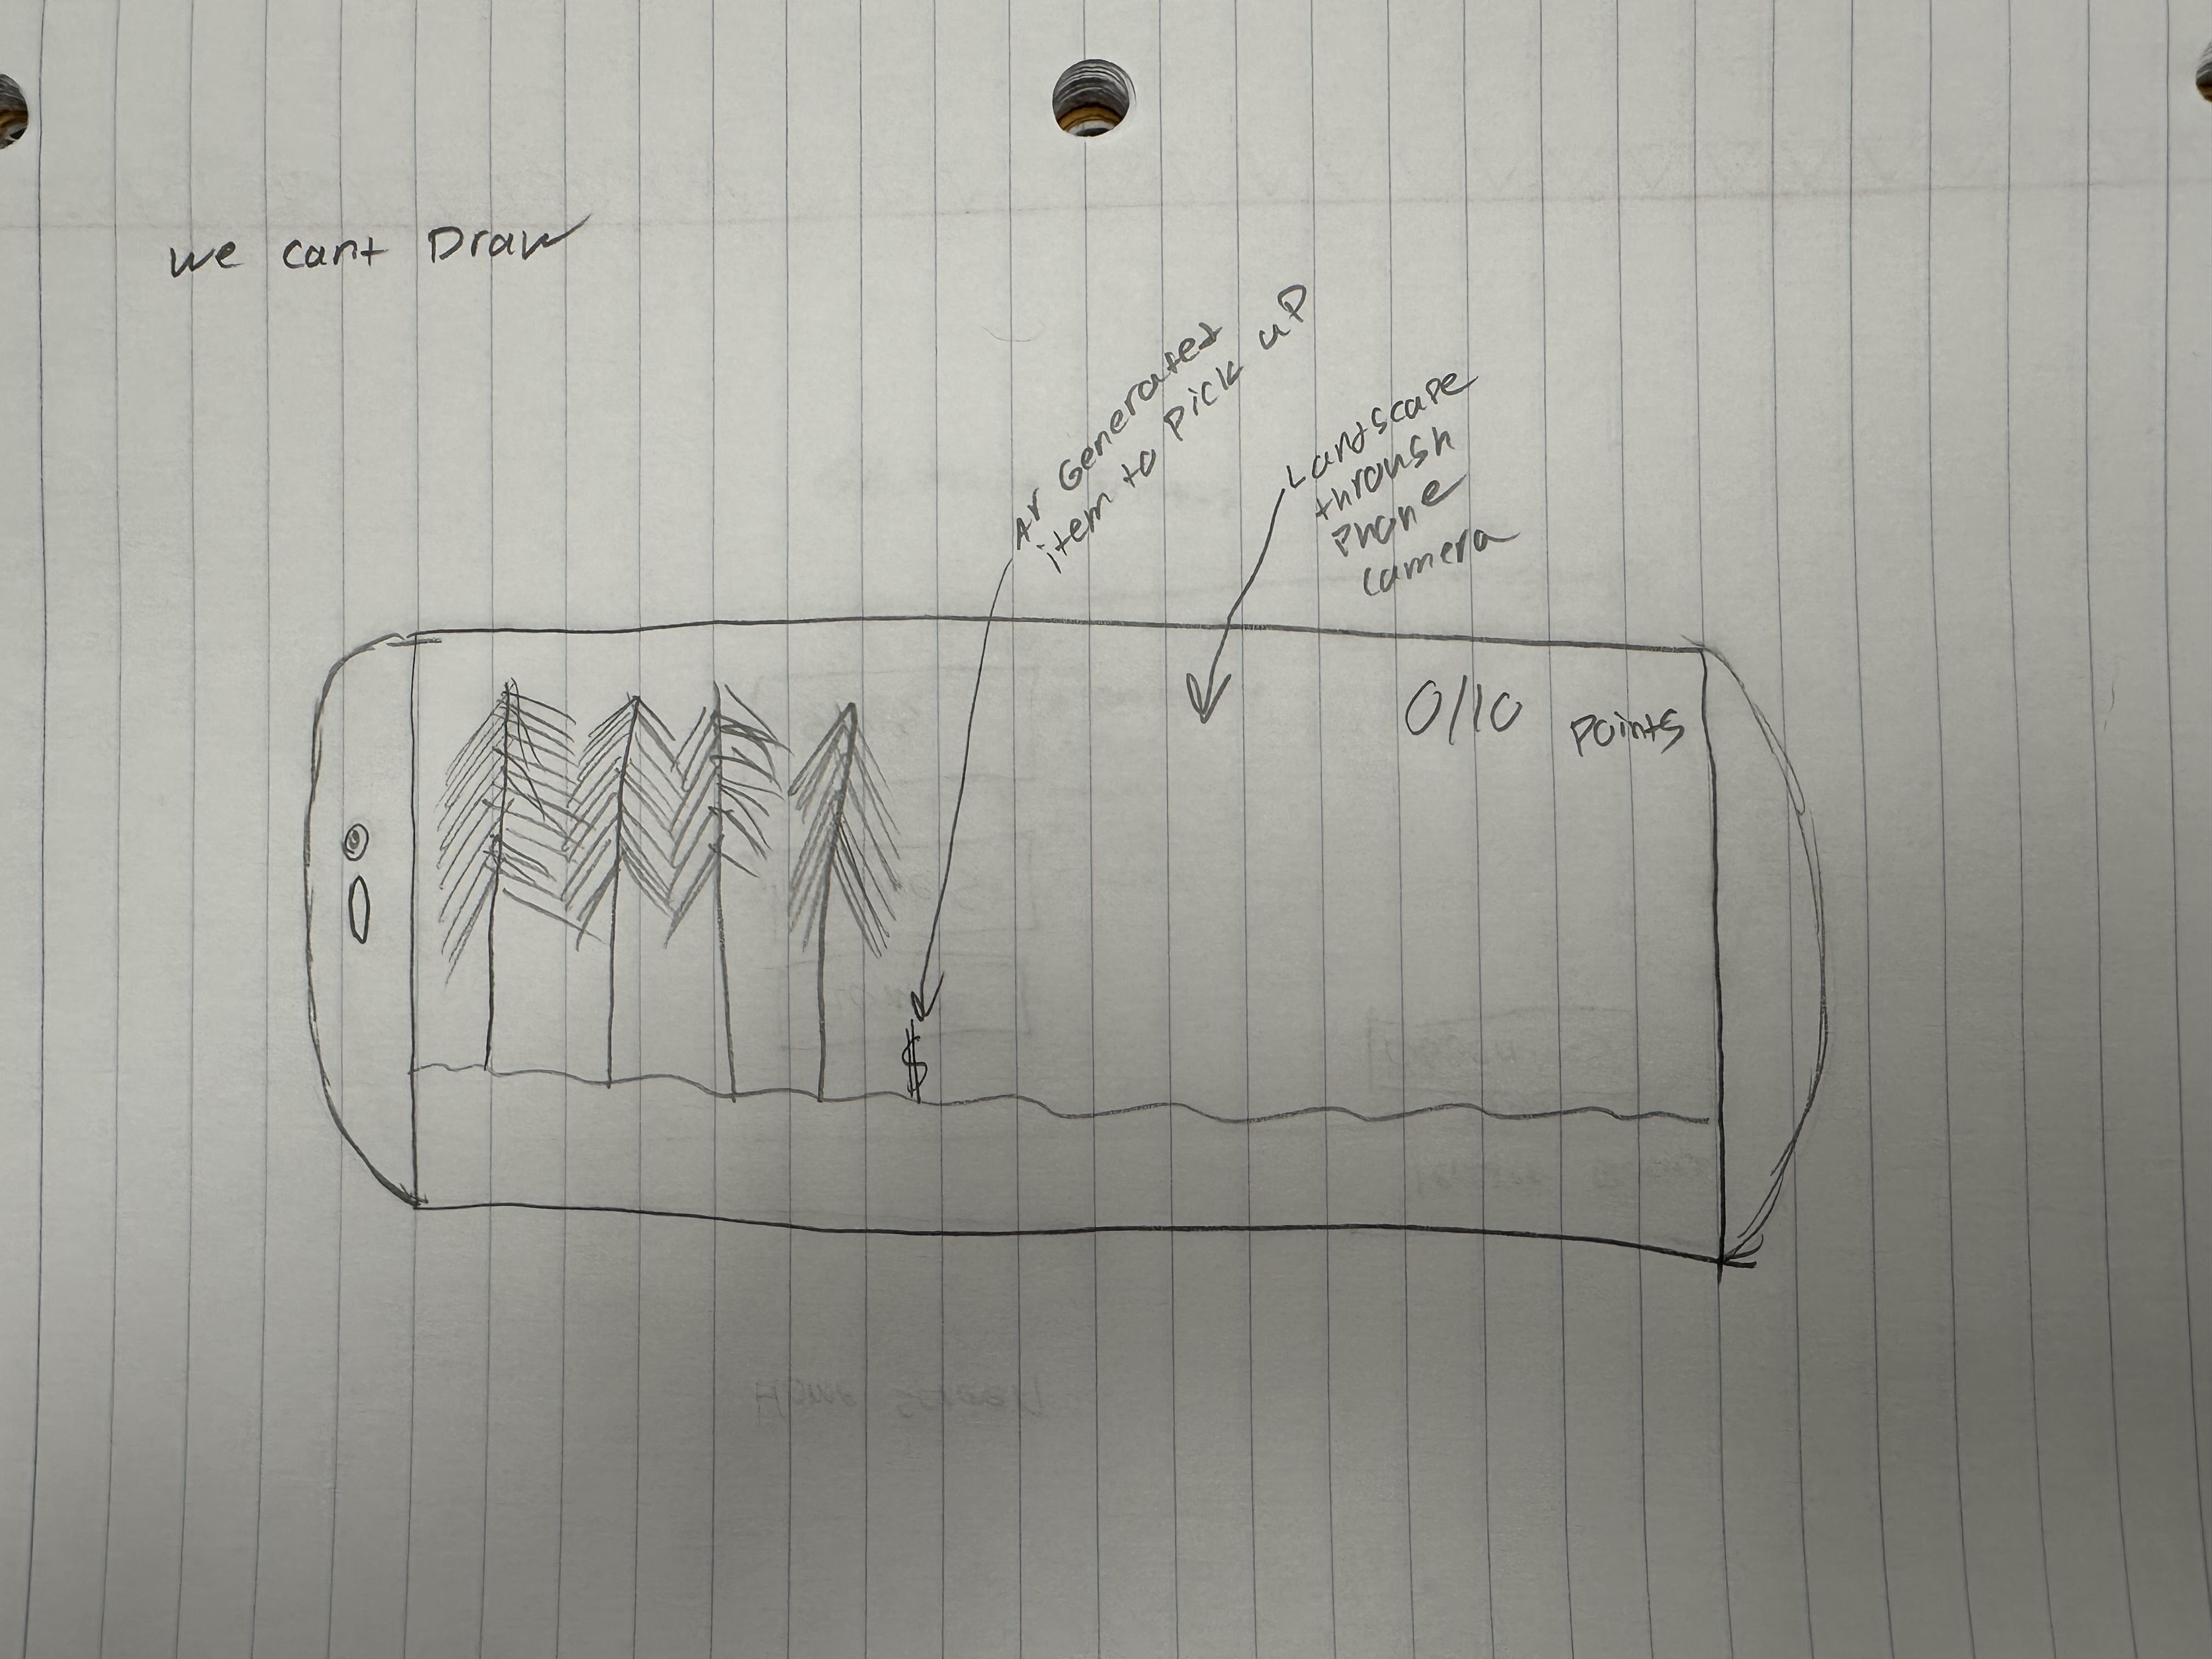 we cant Draw
Ar Generated
item to pick up
Landscape
through
Phone
camera
0/10 points
$